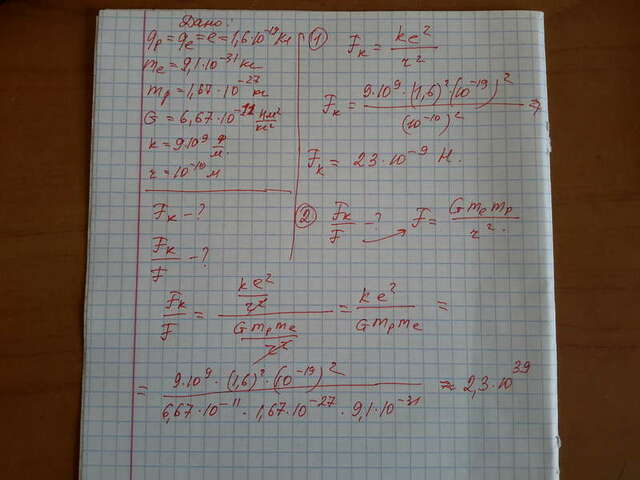 Дано:
qp = qe = e = 1,6·10⁻¹⁹ Кл
me = 9,1·10⁻³¹ кг
mp = 1,67·10⁻²⁷ кг
G = 6,67·10⁻¹¹ Нм²/кг²
k = 9·10⁹ Ф/м.
r = 10⁻¹⁰ м
Fк - ?
Fк/F - ?
① Fк = ke²/r²
Fк = 9·10⁹·(1,6)²·(10⁻¹⁹)²/(10⁻¹⁰)² ⇒
Fк = 23·10⁻⁹ Н.
② Fк/F - ? → F = G me mp/r².
Fк/F = (ke²/r²)/(G mp me/r²) = ke²/(G mp me) =
= 9·10⁹·(1,6)²·(10⁻¹⁹)²/(6,67·10⁻¹¹·1,67·10⁻²⁷·9,1·10⁻³¹) ≈ 2,3·10³⁹